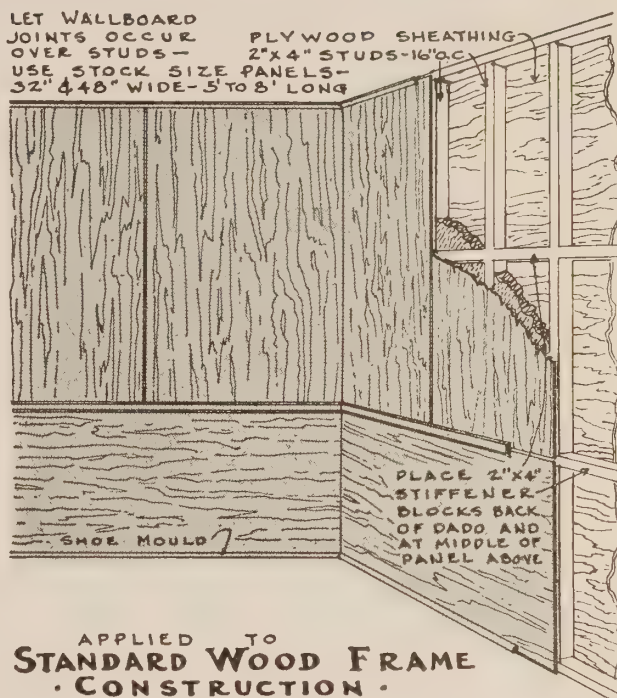 LET WALLBOARD
JOINTS OCCUR
OVER STUDS—
USE STOCK SIZE PANELS—
32" & 48" WIDE-5' TO 8' LONG
PLYWOOD SHEATHING
2"X4" STUDS-16"O.C.
PLACE 2"X4"
STIFFENER
BLOCKS BACK
OF DADO AND
AT MIDDLE OF
PANEL ABOVE
SHOE MOULD
APPLIED TO
STANDARD WOOD FRAME
• CONSTRUCTION •